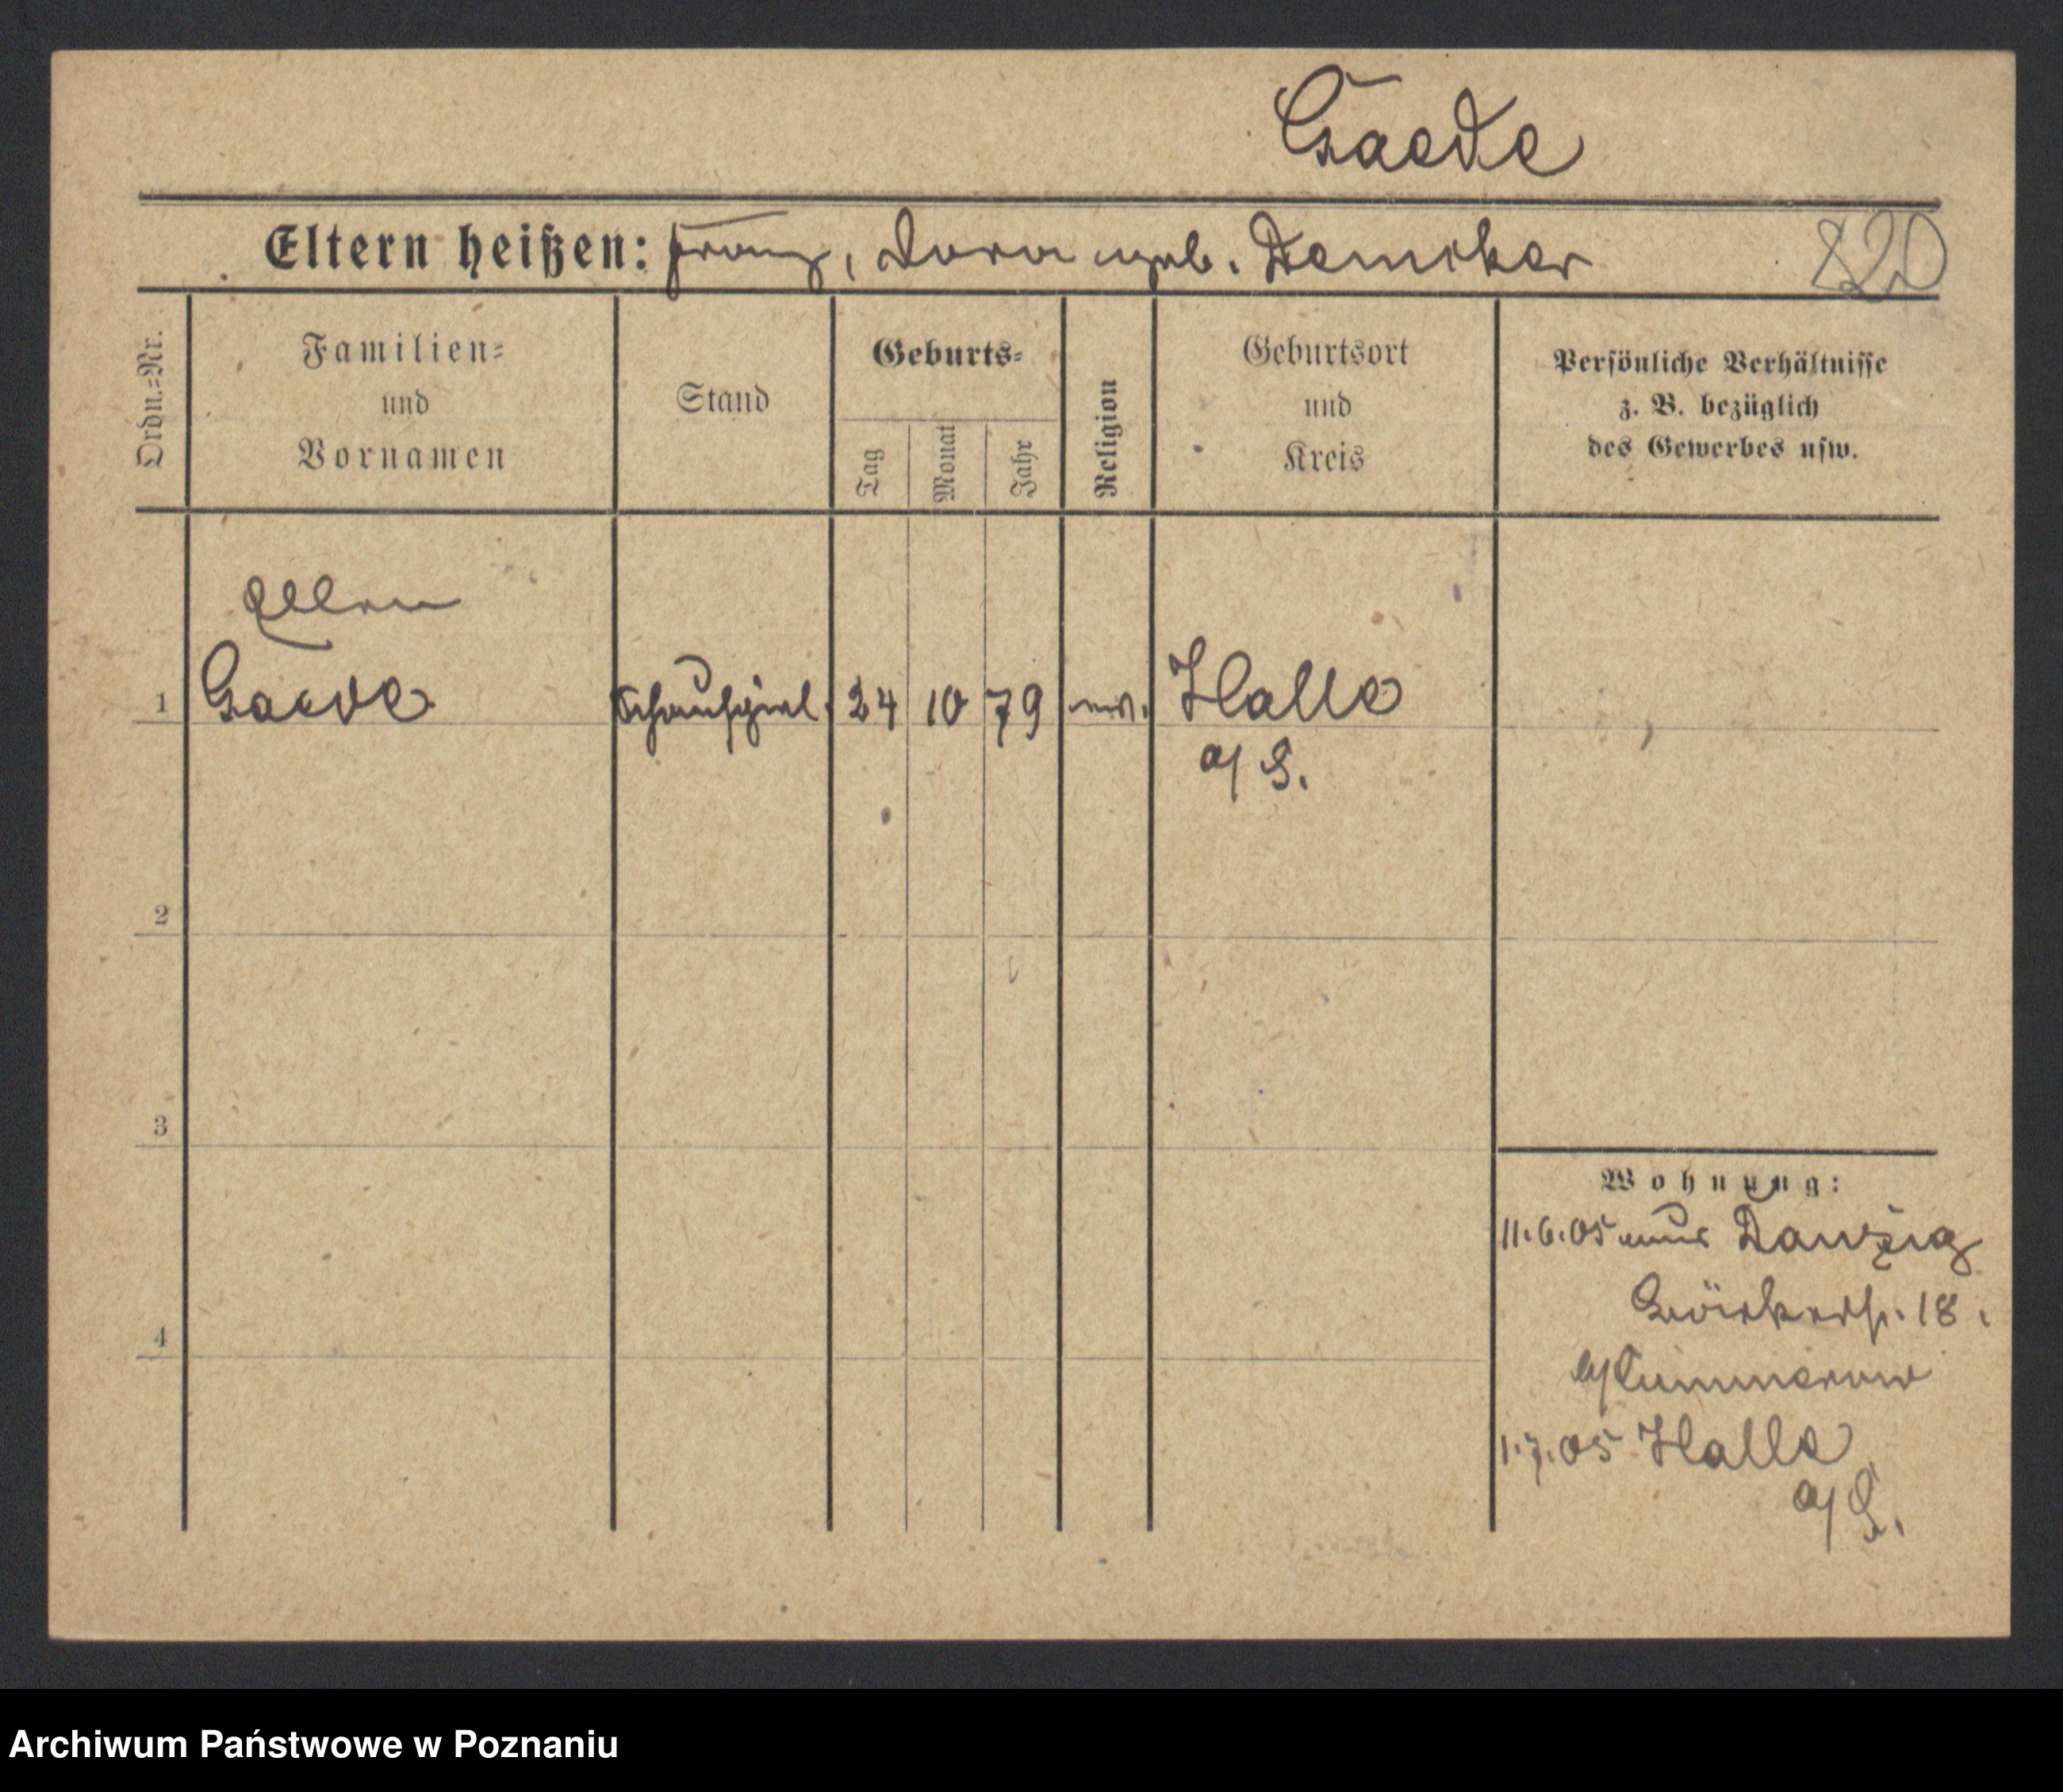 Gaede
Eltern heißen: Franz, Dora geb. Demiker
820
Ordn.=Nr.
Familien=
und
Vornamen
Stand
Geburts=
Tag
Monat
Jahr
Religion
Geburtsort
und
Kreis
Persönliche Verhältnisse
z. B. bezüglich
des Gewerbes usw.
1
Gaede
Schauspiel.
24
10
79
Halle
a/S.
2
3
4
Wohnung:
11.6.05 Danzig
18.
Cummerow
1.7.05 Halle
a/S.
Archiwum Państwowe w Poznaniu